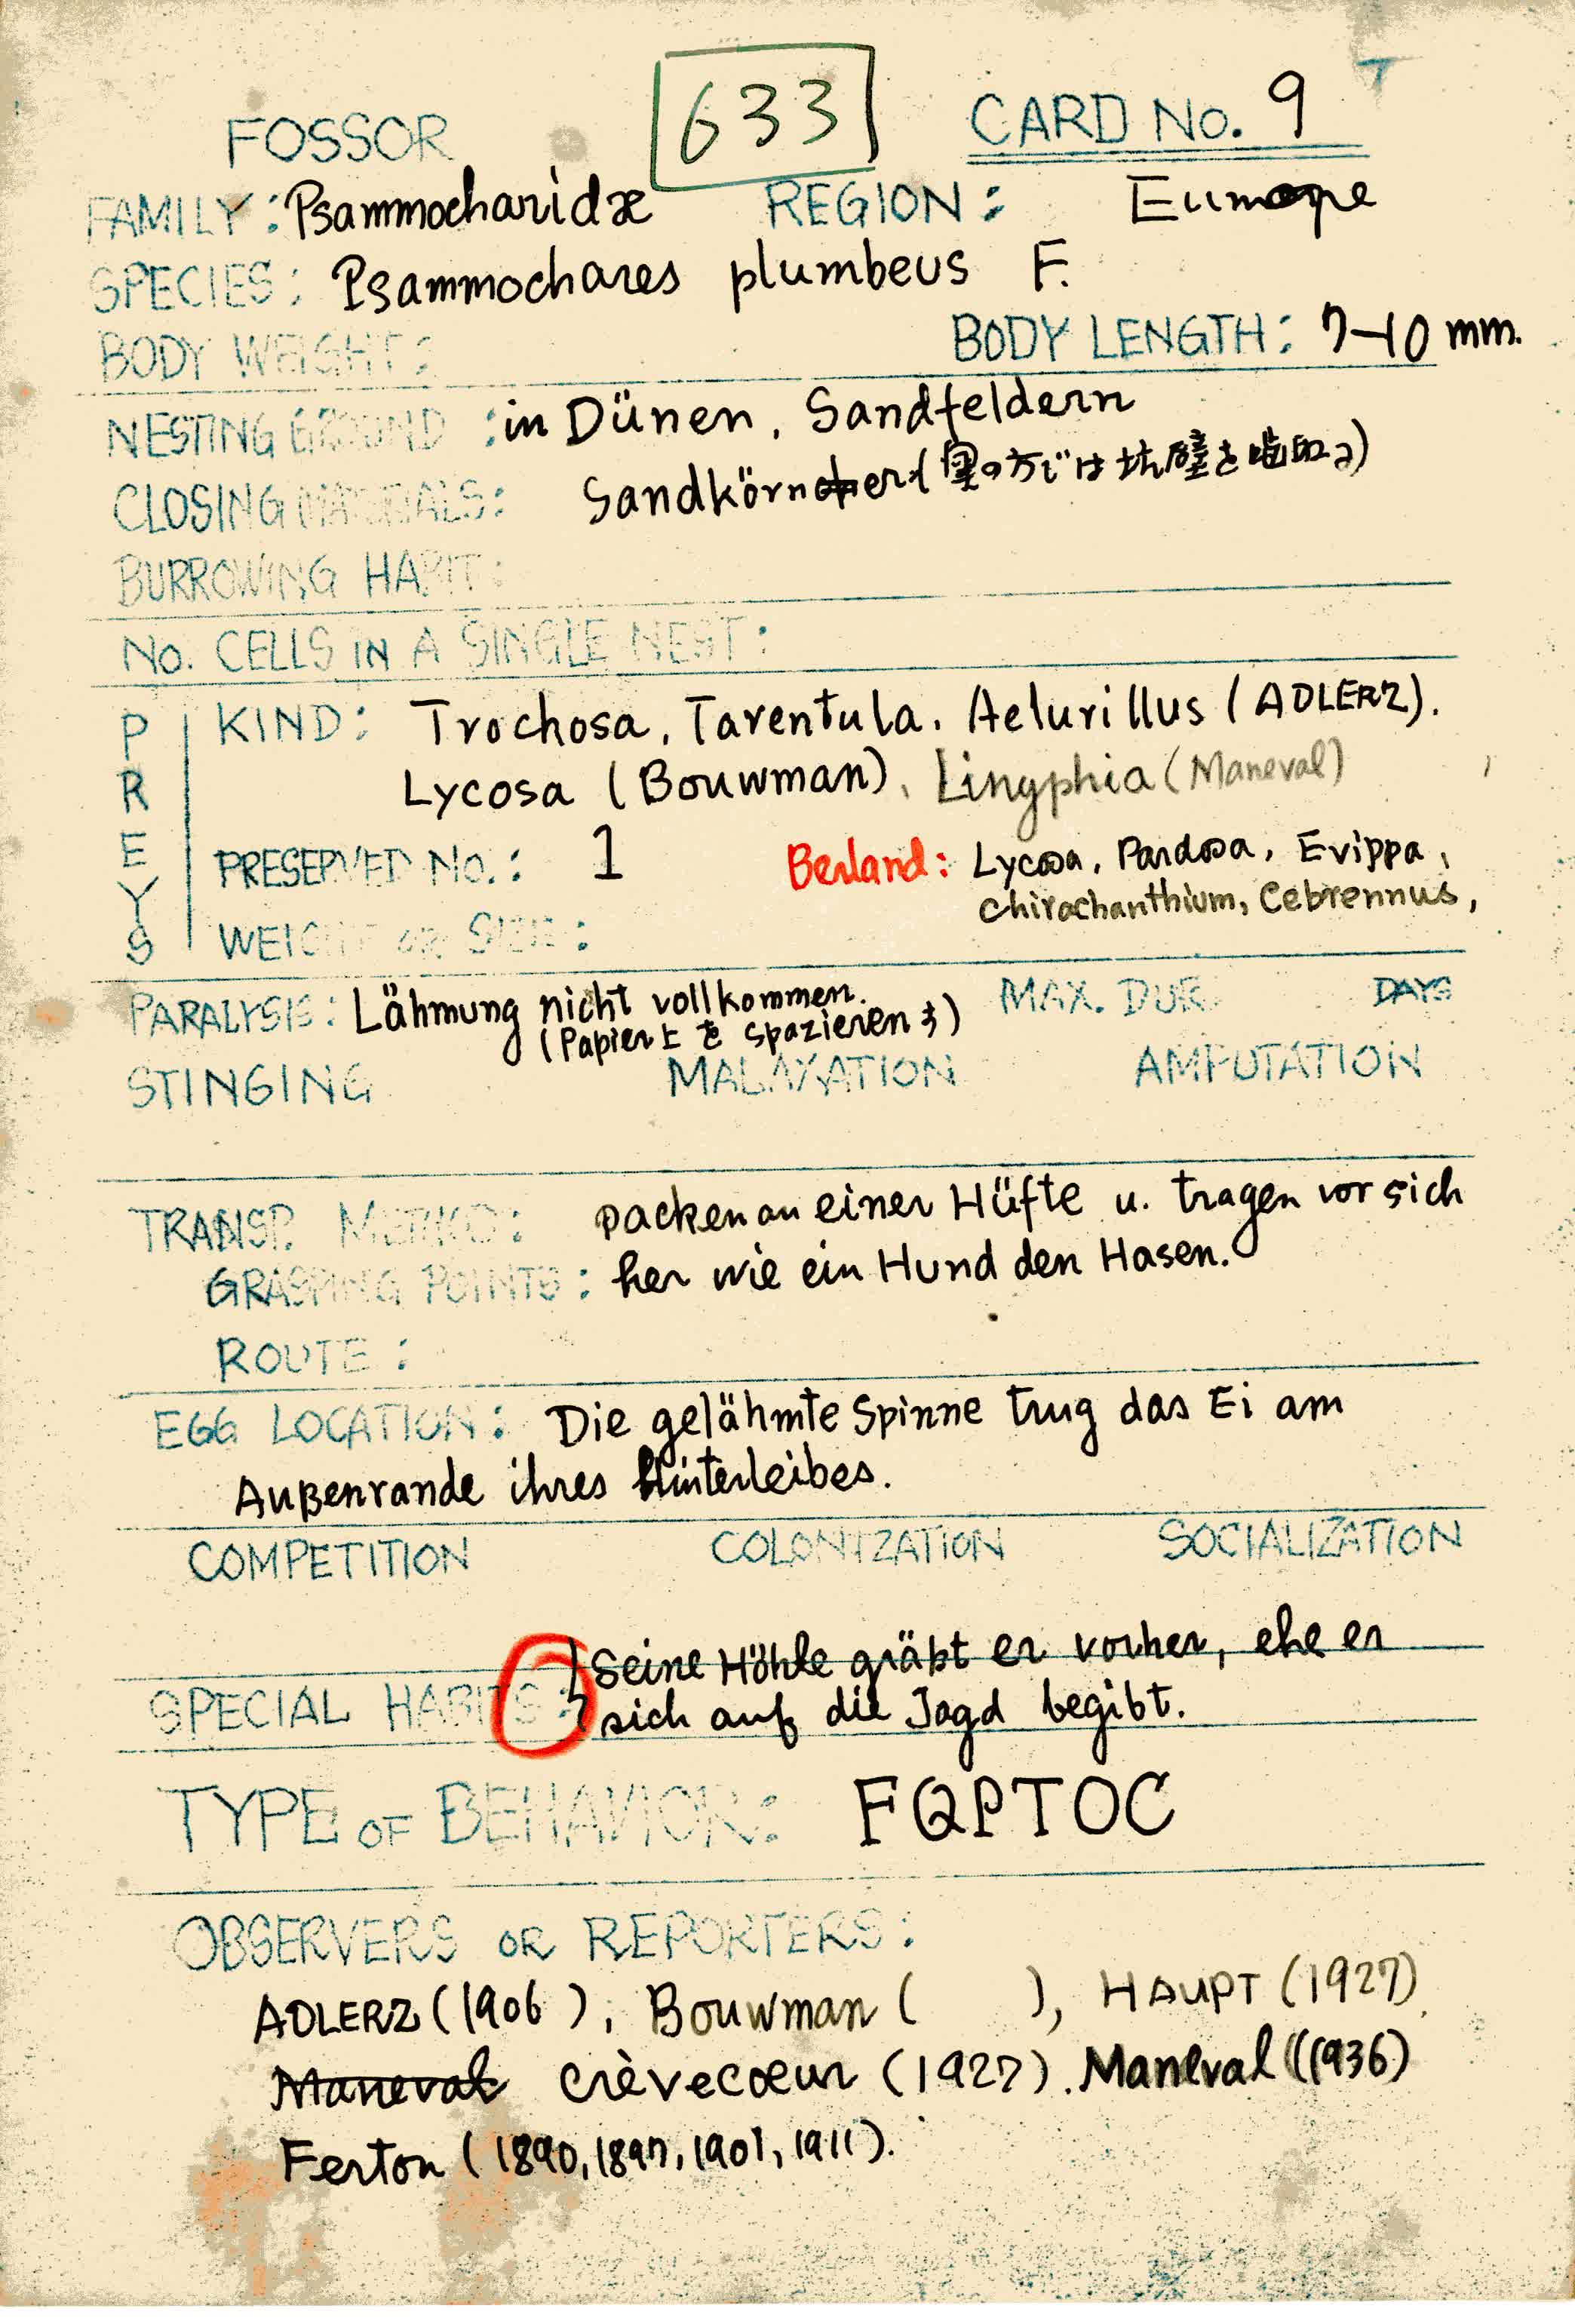 633
FOSSOR CARD No. 9
FAMILY: Psammocharidæ REGION: Europe
SPECIES: Psammochares plumbeus F.
BODY WEIGHT: BODY LENGTH: 7-10 mm.
NESTING GROUND: in Dünen, Sandfeldern
CLOSING MATERIALS: Sandkörner (奥の方では坑壁を噛取る)
BURROWING HABIT:
No. CELLS IN A SINGLE NEST:
PREYS
KIND: Trochosa, Tarentula, Aelurillus (ADLERZ).
Lycosa (Bouwman), Lingphia (Maneval)
PRESERVED No.: 1 Berland: Lycosa, Pardosa, Evippa,
Chirachanthium, Cebrennus,
WEIGHT OR SIZE:
PARALYSIS: Lähmung nicht vollkommen. MAX. DUR. DAYS
(Papier上を spazierenす)
STINGING MALAXATION AMPUTATION
TRANSP. METHOD: packen an einer Hüfte u. tragen vor sich
GRASPING POINTS: her wie ein Hund den Hasen.
ROUTE:
EGG LOCATION: Die gelähmte Spinne trug das Ei am
Außenrande ihres Hinterleibes.
COMPETITION COLONIZATION SOCIALIZATION
Seine Höhle gräbt er vorher, ehe er
SPECIAL HABITS: sich auf die Jagd begibt.
TYPE OF BEHAVIOR: FQPTOC
OBSERVERS OR REPORTERS:
ADLERZ (1906), Bouwman ( ), HAUPT (1927),
Maneval Crèvecœur (1927). Maneval (1936)
Ferton (1890, 1897, 1901, 1911).